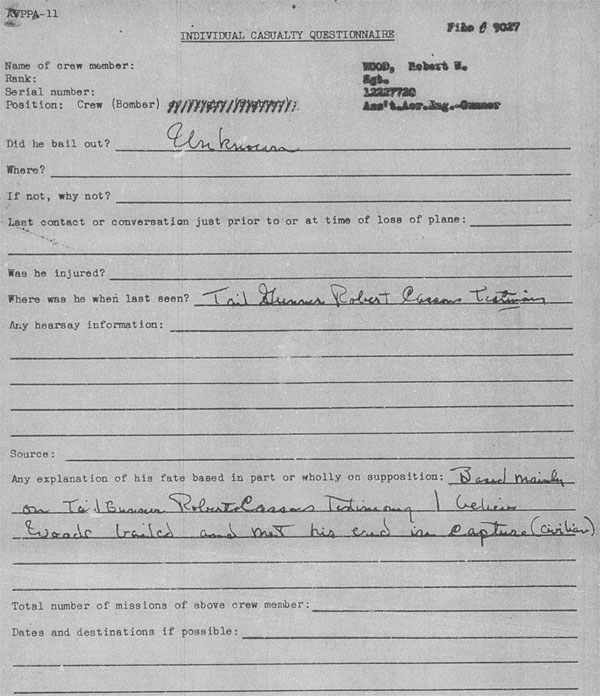 AVPPA-11
File # 9027
INDIVIDUAL CASUALTY QUESTIONNAIRE
Name of crew member: WOOD, Robert W.
Rank: Sgt.
Serial number: 12227720
Position: Crew (Bomber) Ass't.Aer.Eng.-Gunner
Did he bail out? Unknown
Where?
If not, why not?
Last contact or conversation just prior to or at time of loss of plane:
Was he injured?
Where was he when last seen? Tail Gunner Robert Cassons Testimony
Any hearsay information:
Source:
Any explanation of his fate based in part or wholly on supposition: Based mainly
on Tail Gunner Robert Cassons Testimony I believe
Woods bailed and met his end in capture (civilian)
Total number of missions of above crew member:
Dates and destinations if possible: